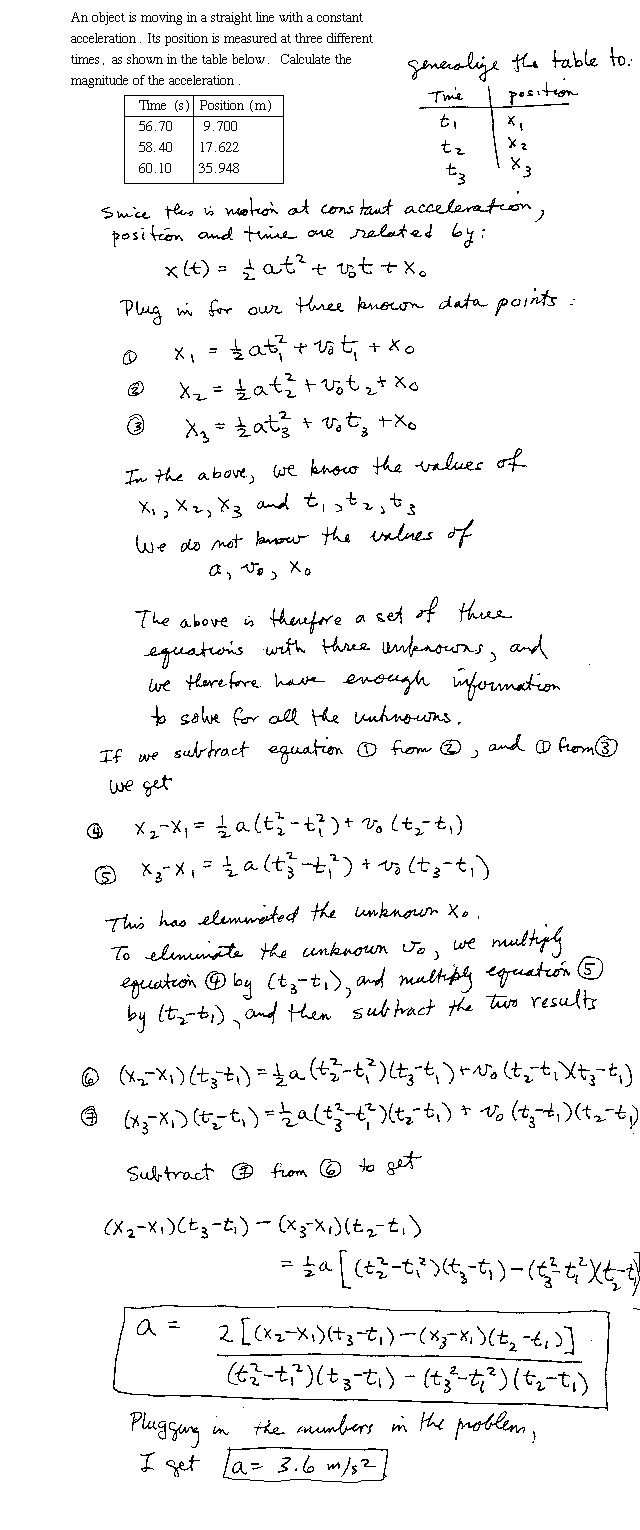 An object is moving in a straight line with a constant
acceleration. Its position is measured at three different
times, as shown in the table below. Calculate the
magnitude of the acceleration.
Time (s) Position (m)
56.70 9.700
58.40 17.622
60.10 35.948
generalize the table to:
Time position
t₁ x₁
t₂ x₂
t₃ x₃
Since this is motion at constant acceleration,
position and time are related by:
x(t) = ½at² + v₀t + x₀
Plug in for our three known data points:
① x₁ = ½at₁² + v₀t₁ + x₀
② x₂ = ½at₂² + v₀t₂ + x₀
③ x₃ = ½at₃² + v₀t₃ + x₀
In the above, we know the values of
x₁, x₂, x₃ and t₁, t₂, t₃
We do not know the values of
a, v₀, x₀
The above is therefore a set of three
equations with three unknowns, and
we therefore have enough information
to solve for all the unknowns.
If we subtract equation ① from ②, and ① from ③
we get
④ x₂-x₁ = ½a(t₂²-t₁²) + v₀(t₂-t₁)
⑤ x₃-x₁ = ½a(t₃²-t₁²) + v₀(t₃-t₁)
This has eliminated the unknown x₀.
To eliminate the unknown v₀, we multiply
equation ④ by (t₃-t₁), and multiply equation ⑤
by (t₂-t₁), and then subtract the two results
⑥ (x₂-x₁)(t₃-t₁) = ½a(t₂²-t₁²)(t₃-t₁) + v₀(t₂-t₁)(t₃-t₁)
⑦ (x₃-x₁)(t₂-t₁) = ½a(t₃²-t₁²)(t₂-t₁) + v₀(t₃-t₁)(t₂-t₁)
Subtract ⑦ from ⑥ to get
(x₂-x₁)(t₃-t₁) - (x₃-x₁)(t₂-t₁)
= ½a[(t₂²-t₁²)(t₃-t₁) - (t₃²-t₁²)(t₂-t₁)]
a = 2[(x₂-x₁)(t₃-t₁)-(x₃-x₁)(t₂-t₁)]
(t₂²-t₁²)(t₃-t₁) - (t₃²-t₁²)(t₂-t₁)
Plugging in the numbers in the problem,
I get a = 3.6 m/s²